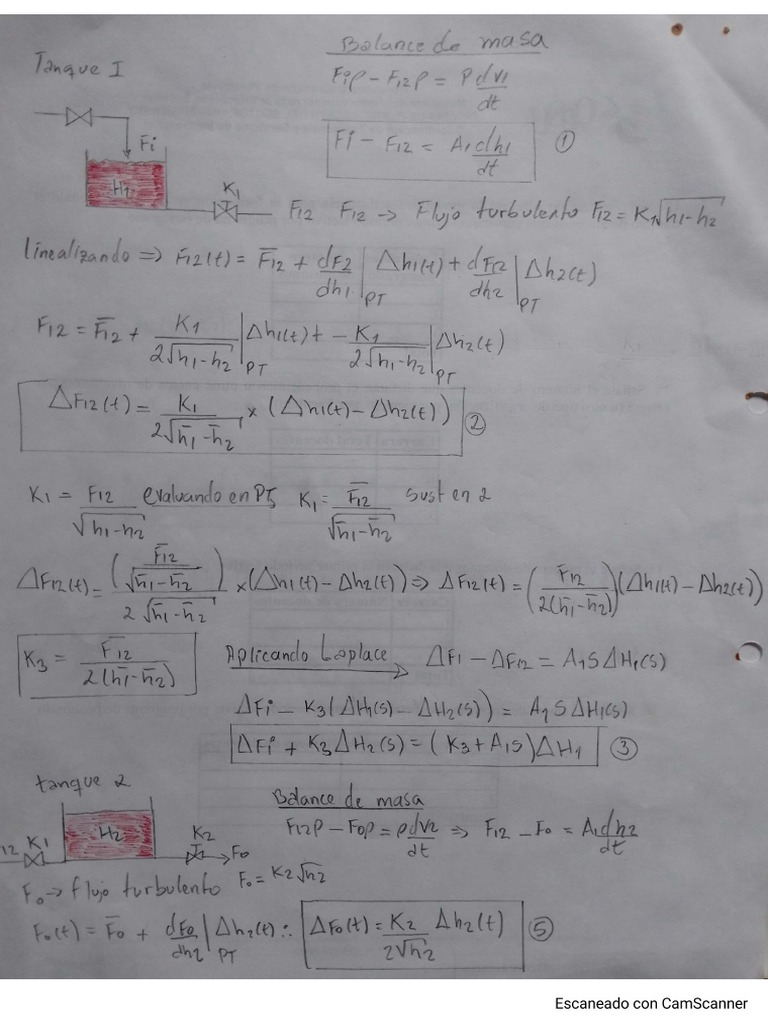 Balance de masa
Tanque I
Fiρ - F12ρ = ρ dv1/dt
Fi
Fi - F12 = A1 dh1/dt ①
H1
K1
F12 F12 → Flujo turbulento F12 = K1√h1-h2
linealizando ⇒ F12(t) = F̅12 + dF2/dh1 |PT Δh1(t) + dF12/dh2 |PT Δh2(t)
F12 = F̅12 + K1/2√h1-h2 |PT Δh1(t) + - K1/2√h1-h2 |PT Δh2(t)
ΔF12(t) = K1/2√h̅1-h̅2 × (Δh1(t) - Δh2(t)) ②
K1 = F12/√h1-h2 evaluando en PT, K1 = F̅12/√h̅1-h̅2 Sust en 2
ΔF12(t) = (F̅12/√h̅1-h̅2)/2√h̅1-h̅2 × (Δh1(t) - Δh2(t)) ⇒ ΔF12(t) = (F̅12/2(h̅1-h̅2)) (Δh1(t) - Δh2(t))
K3 = F̅12/2(h̅1-h̅2) Aplicando Laplace → ΔFi - ΔF12 = A1SΔH1(s)
ΔFi - K3(ΔH1(s) - ΔH2(s)) = A1SΔH1(s)
ΔFi + K3ΔH2(s) = (K3+A1S)ΔH1 ③
tanque 2
Balance de masa
H2
F12ρ - F0ρ = ρ dv2/dt ⇒ F12 - F0 = A1 dh2/dt
12 K1
K2
F0
F0 → flujo turbulento F0 = K2√h2
F0(t) = F̅0 + dF0/dh2 |PT Δh2(t) ∴ ΔF0(t) = K2/2√h̅2 Δh2(t) ⑤
Escaneado con CamScanner